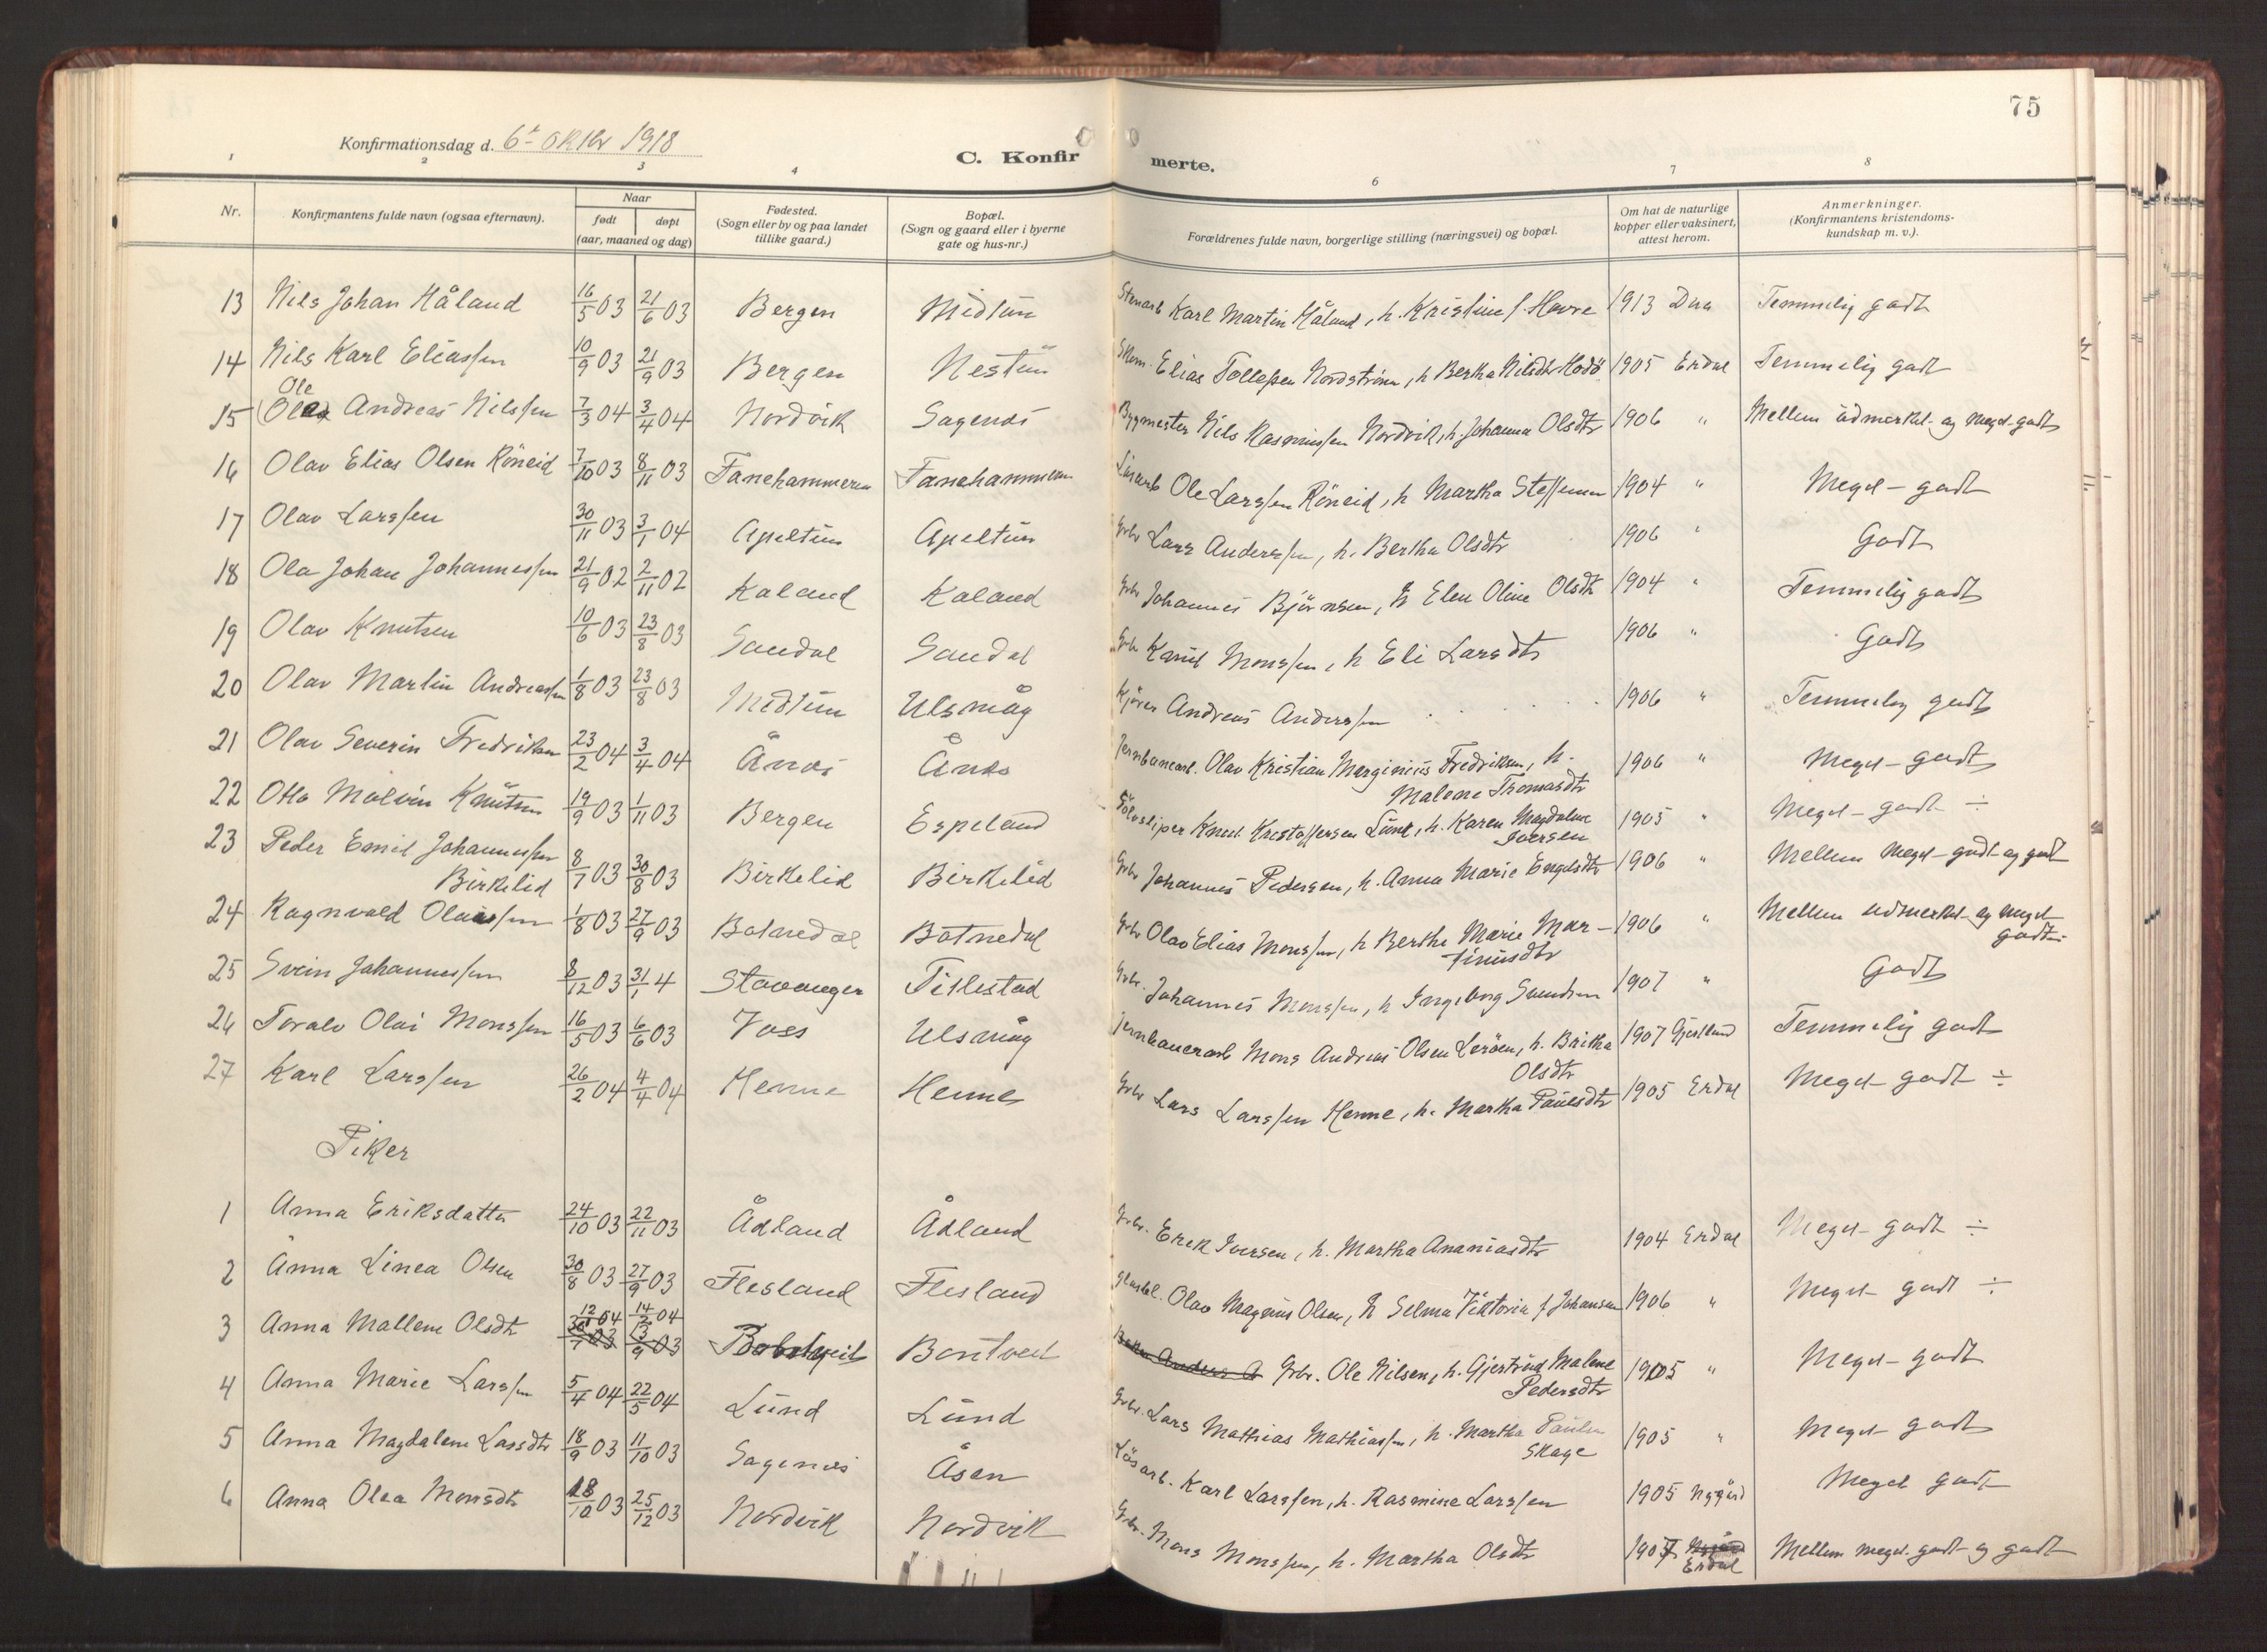 75
Konfirmationsdag d. 6te oktbr 1918
C. Konfirmerte.
1 2 3 4 6 7 8
Nr.
Konfirmantens fulde navn (ogsaa efternavn).
Naar
født døpt
(aar, maaned og dag)
Fødested.
(Sogn eller by og paa landet
tillike gaard.)
Bopæl.
(Sogn og gaard eller i byerne
gate og hus-nr.)
Forældrenes fulde navn, borgerlige stilling (næringsvei) og bopæl.
Om hat de naturlige
kopper eller vaksinert,
attest herom.
Anmerkninger.
(Konfirmantens kristendoms-
kundskap m. v.).
13 Nils Johan Håland 16/5 03 21/6 03 Bergen Midtun Stenarb Karl Martin Håland, h. Kristine f. Havre 1913 Temmelig godt
14 Nils Karl Eliassen 10/9 03 21/9 03 Bergen Nestun Skom. Elias Tollefsen Nordstrøm, h Bertha Nilsdtr 1905 Erdal Temmelig godt
Ole
15 Andreas Nilssen 7/3 04 3/4 04 Nordvik Sagenes Bygmester Nils Rasmussen Nordvik, h. Johanna Olsdtr 1906 " Mellem udmerket og meget godt
16 Olav Elias Olsen Röneid 7/10 03 8/11 03 Fanehammeren Fanehammeren Løsarb Ole Larssen Röneid, h Martha Steffensen 1904 " Meget godt
17 Olav Larssen 30/11 03 3/1 04 Apeltun Apeltun Grbr Lars Anderssen, h. Bertha Olsdtr 1906 " Godt
18 Ola Johan Johannessen 21/9 02 2/11 02 Kaland Kaland Grbr Johannes Björnsen, h Elen Oline Olsdtr 1904 " Temmelig godt
19 Olav Knutsen 10/6 03 23/8 03 Sandal Sandal Grbr Knut Monssen, h Eli Larsdtr 1906 " Godt
20 Olav Martin Andreassen 1/8 03 23/8 03 Midtun Ulsmåg Kjører Andreas Anderssen 1906 " Temmelig godt
21 Olav Severin Fredriksen 23/2 04 3/4 04 Ånes Ånes Jernbanearb. Olav Kristian Merginius Fredriksen, h.
Malene Thomasdtr 1906 " Meget godt
22 Otto Malvin Knutsen 19/9 03 1/11 03 Bergen Espeland Sölvsliper Knud Kristoffersen Lune, h. Karen Magdalene
Iversen 1905 " Meget godt ÷
23 Peder Emil Johannessen
Birkelid 8/7 03 30/8 03 Birkelid Birkelid Grbr Johannes Pedersen, h. Anna Marie Engelsdtr 1906 " Mellem meget godt og godt
24 Ragnvald Olaissen 1/8 03 27/9 03 Botnedal Botnedal Grbr Olav Elias Monssen, h Berthe Marie Mar-
tinusdtr 1906 " Mellem udmerket og meget
godt
25 Svein Johannessen 8/12 03 31/1 4 Stavanger Titlestad Grbr. Johannes Monssen, h Ingeborg Svendsen 1907 " Godt
26 Toralv Olai Monssen 16/5 03 6/6 03 Voss Ulsmåg Jernbanearb Mons Andreas Olsen Leröen, h. Britha
Olsdtr 1907 Gjestland Temmelig godt
27 Karl Larssen 26/2 04 4/4 04 Henne Hennes Grbr Lars Larssen Henne, h. Martha Paulsdtr 1905 Erdal Meget godt ÷
Piker
1 Anna Eriksdatter 24/10 03 22/11 03 Ådland Ådland Grbr. Erik Iversen, h. Martha Ananiasdtr 1904 Erdal Meget godt ÷
2 Anna Linea Olsen 30/8 03 27/9 03 Flesland Flesland Olav Magnus Olsen, h Selma Viktoria f Johansen 1906 " Meget godt ÷
3 Anna Mallene Olsdtr 12/1 04 14/2 04 Bontveit Anders Grbr. Ole Nilsen, h. Gjertrud Malene
Pedersdtr 1905 " Meget godt
4 Anna Marie Larssen 5/4 04 22/5 04 Lund Lund Grbr. Lars Mathias Mathiassen, h. Martha Paulsen
Skage 1905 " Meget godt
5 Anna Magdalene Larsdtr 18/9 03 11/10 03 Sagenes Åsen Løsarb. Karl Larssen, h. Rasmine Larssen 1905 Nygård Meget godt
6 Anna Olea Monsdtr 18/10 03 25/12 03 Nordvik Nordvik Grbr. Mons Monssen, h. Martha Olsdtr 1907
Erdal Mellem meget godt og godt